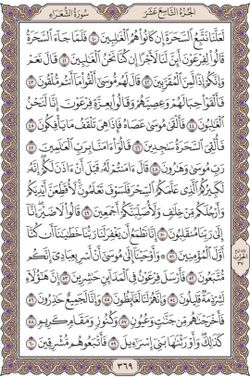 الجُزْءُ التَّاسِعَ عَشَرَ
سُورَةُ الشُّعَرَاءِ
لَعَلَّنَا نَتَّبِعُ ٱلسَّحَرَةَ إِن كَانُوا۟ هُمُ ٱلْغَٰلِبِينَ ٤٠ فَلَمَّا جَآءَ ٱلسَّحَرَةُ
قَالُوا۟ لِفِرْعَوْنَ أَئِنَّ لَنَا لَأَجْرًا إِن كُنَّا نَحْنُ ٱلْغَٰلِبِينَ ٤١ قَالَ نَعَمْ
وَإِنَّكُمْ إِذًا لَّمِنَ ٱلْمُقَرَّبِينَ ٤٢ قَالَ لَهُم مُّوسَىٰٓ أَلْقُوا۟ مَآ أَنتُم مُّلْقُونَ ٤٣
فَأَلْقَوْا۟ حِبَالَهُمْ وَعِصِيَّهُمْ وَقَالُوا۟ بِعِزَّةِ فِرْعَوْنَ إِنَّا لَنَحْنُ
ٱلْغَٰلِبُونَ ٤٤ فَأَلْقَىٰ مُوسَىٰ عَصَاهُ فَإِذَا هِىَ تَلْقَفُ مَا يَأْفِكُونَ ٤٥
فَأُلْقِىَ ٱلسَّحَرَةُ سَٰجِدِينَ ٤٦ قَالُوٓا۟ ءَامَنَّا بِرَبِّ ٱلْعَٰلَمِينَ ٤٧
رَبِّ مُوسَىٰ وَهَٰرُونَ ٤٨ قَالَ ءَامَنتُمْ لَهُۥ قَبْلَ أَنْ ءَاذَنَ لَكُمْ إِنَّهُۥ
لَكَبِيرُكُمُ ٱلَّذِى عَلَّمَكُمُ ٱلسِّحْرَ فَلَسَوْفَ تَعْلَمُونَ لَأُقَطِّعَنَّ أَيْدِيَكُمْ
وَأَرْجُلَكُم مِّنْ خِلَٰفٍ وَلَأُصَلِّبَنَّكُمْ أَجْمَعِينَ ٤٩ قَالُوا۟ لَا ضَيْرَ إِنَّآ
إِلَىٰ رَبِّنَا مُنقَلِبُونَ ٥٠ إِنَّا نَطْمَعُ أَن يَغْفِرَ لَنَا رَبُّنَا خَطَٰيَٰنَآ أَن كُنَّآ
أَوَّلَ ٱلْمُؤْمِنِينَ ٥١ وَأَوْحَيْنَآ إِلَىٰ مُوسَىٰٓ أَنْ أَسْرِ بِعِبَادِىٓ إِنَّكُم
مُّتَّبَعُونَ ٥٢ فَأَرْسَلَ فِرْعَوْنُ فِى ٱلْمَدَآئِنِ حَٰشِرِينَ ٥٣ إِنَّ هَٰٓؤُلَآءِ
لَشِرْذِمَةٌ قَلِيلُونَ ٥٤ وَإِنَّهُمْ لَنَا لَغَآئِظُونَ ٥٥ وَإِنَّا لَجَمِيعٌ حَٰذِرُونَ ٥٦
فَأَخْرَجْنَٰهُم مِّن جَنَّٰتٍ وَعُيُونٍ ٥٧ وَكُنُوزٍ وَمَقَامٍ كَرِيمٍ ٥٨
كَذَٰلِكَ وَأَوْرَثْنَٰهَا بَنِىٓ إِسْرَٰٓءِيلَ ٥٩ فَأَتْبَعُوهُم مُّشْرِقِينَ ٦٠
٣٦٩